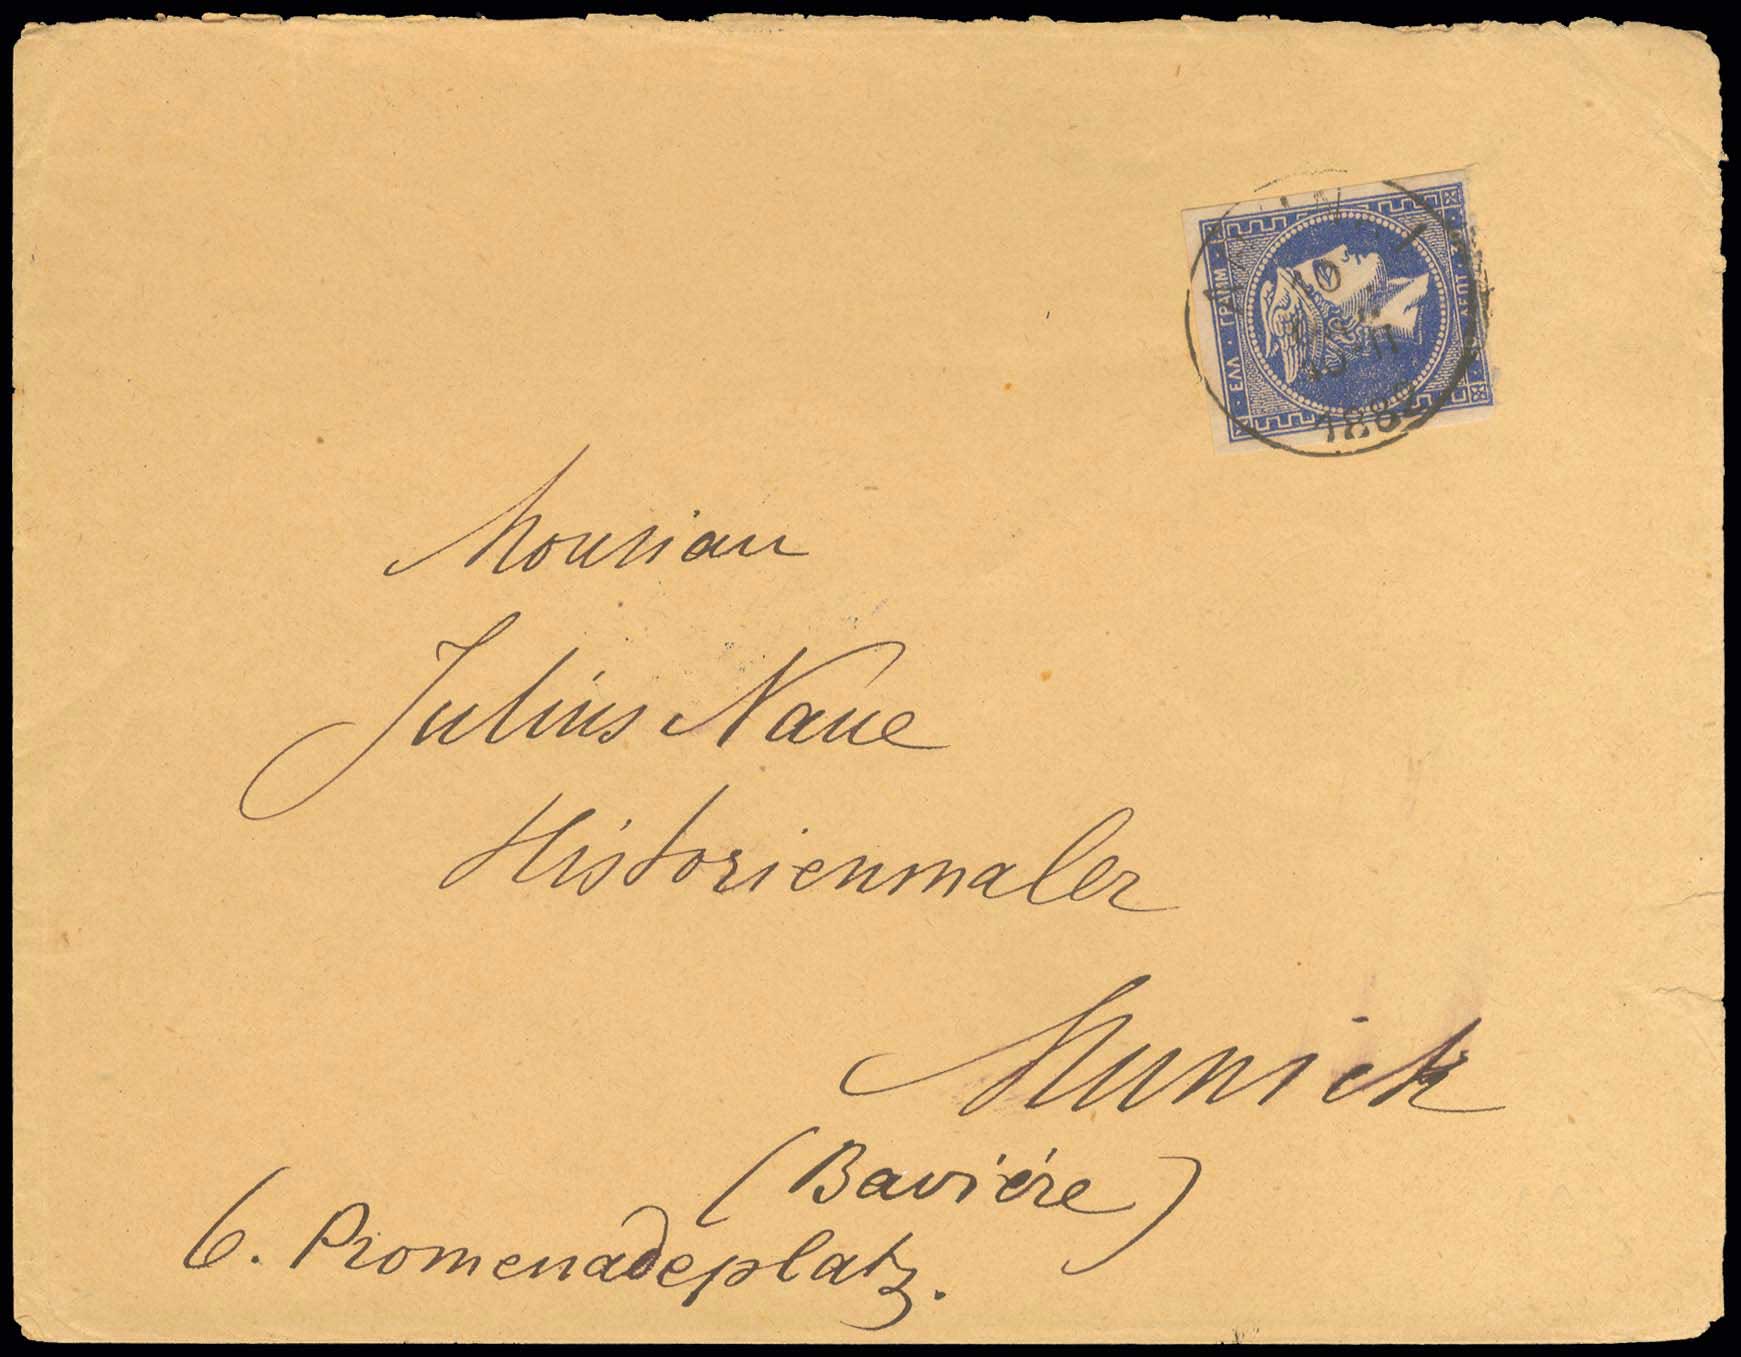 ΕΛΛ · ΓΡΑΜΜ
ΛΕΠΤ
10
188
Mousiau
Julius Naue
Historienmaler
Munich
(Baviére)
6. Promenadeplatz.